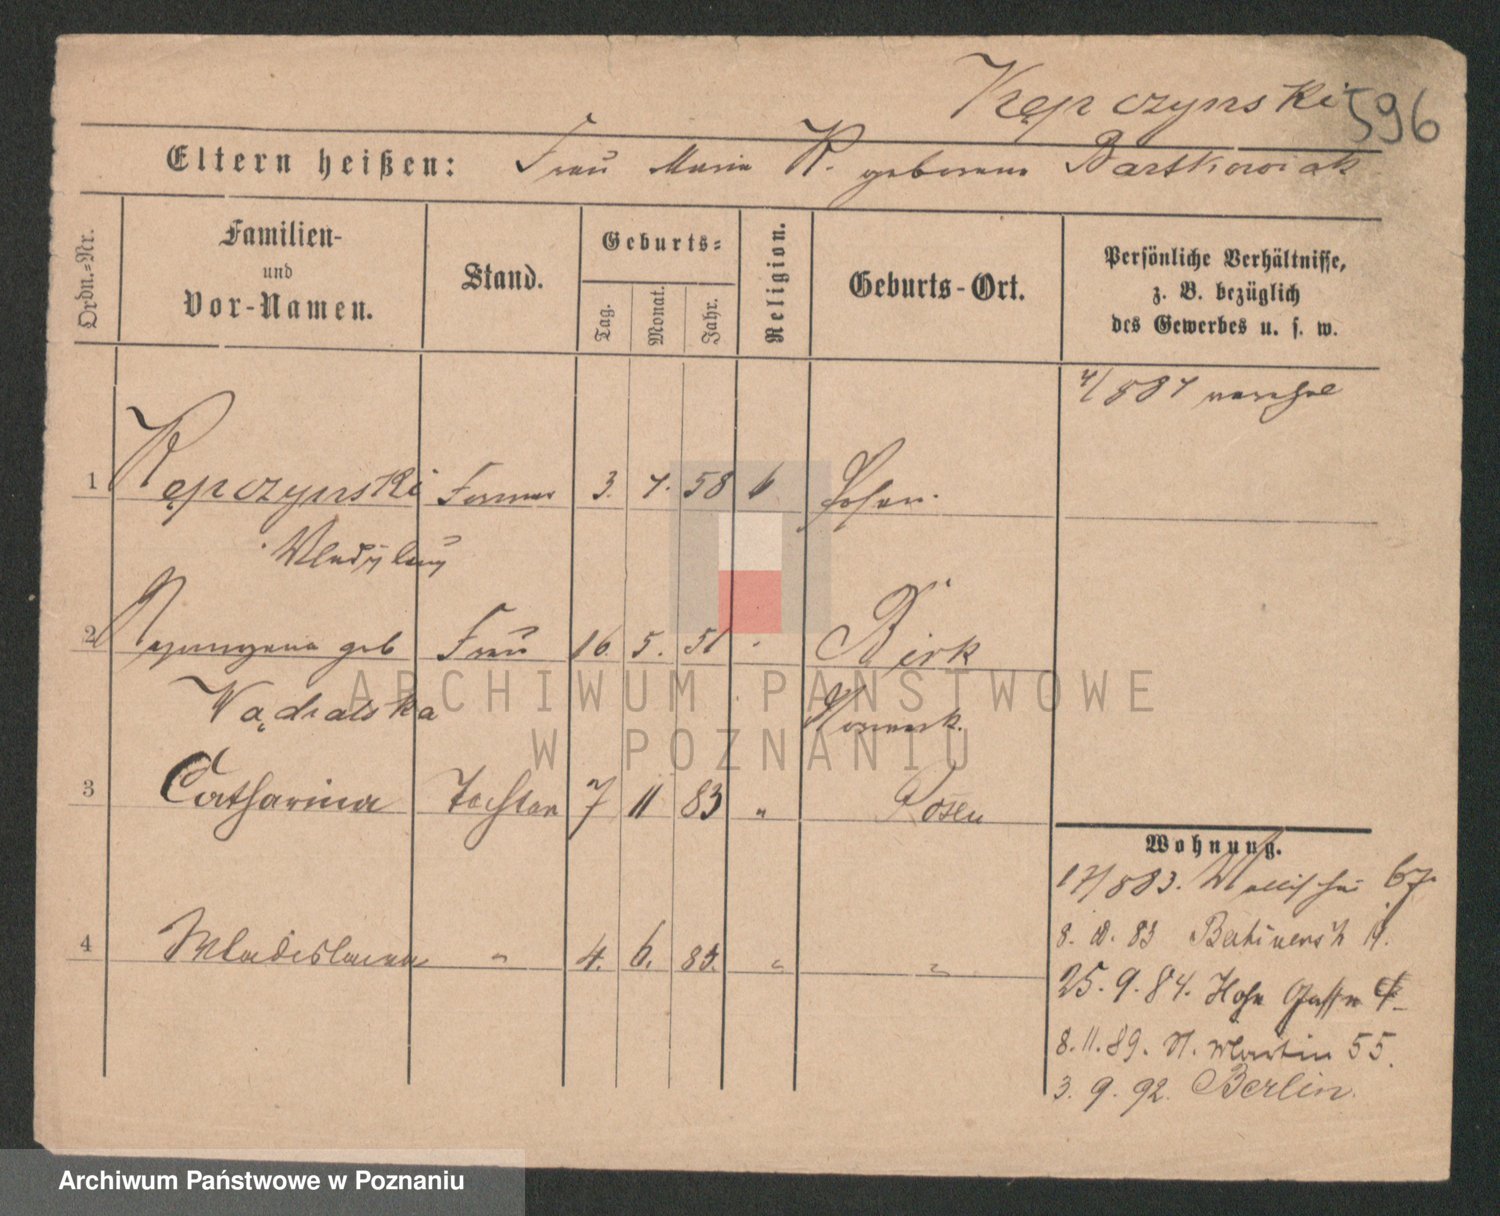 Kępczynski
596
Eltern heißen: Frau Maria K. geborene Bartkowiak
Ordn.-Nr.
Familien-
und
Vor-Namen.
Stand.
Geburts-
Tag.
Monat.
Jahr.
Religion.
Geburts-Ort.
Persönliche Verhältnisse,
z. B. bezüglich
des Gewerbes u. s. w.
1 Kępczynski Former 3. 7. 58 k Posen.
Wladislaus
2 geb Frau 16. 5. 51 "
Birk
Wądralska
3 Catharina Tochter 7 11 83 " Posen
4 Wladislawa " 4. 6. 85. " "
Wohnung.
17/883. Wallischei 67.
8. 83
25. 9. 84. Hohe Gasse 4.
8. 11. 89. St. Martin 55.
3. 9. 92. Berlin.
ARCHIWUM PAŃSTWOWE
W POZNANIU
Archiwum Państwowe w Poznaniu